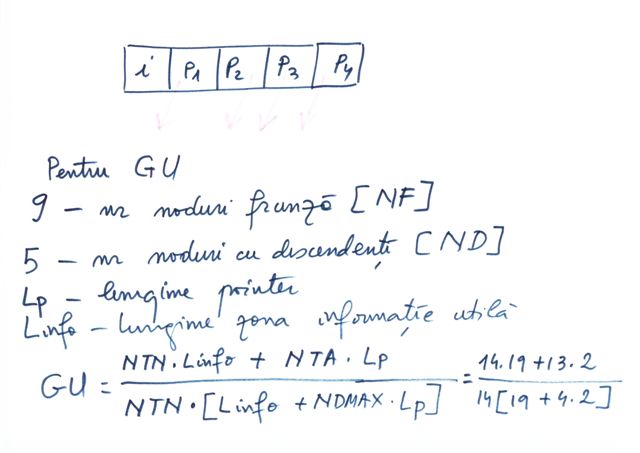 i P1 P2 P3 P4
Pentru GU
9 – nr noduri frunză [NF]
5 – nr noduri cu descendenți [ND]
Lp – lungime pointer
Linfo – lungime zona informație utilă
GU = NTN·Linfo + NTA·Lp / NTN·[Linfo + NDMAX·Lp] = 14.19+13.2 / 14[19+4.2]